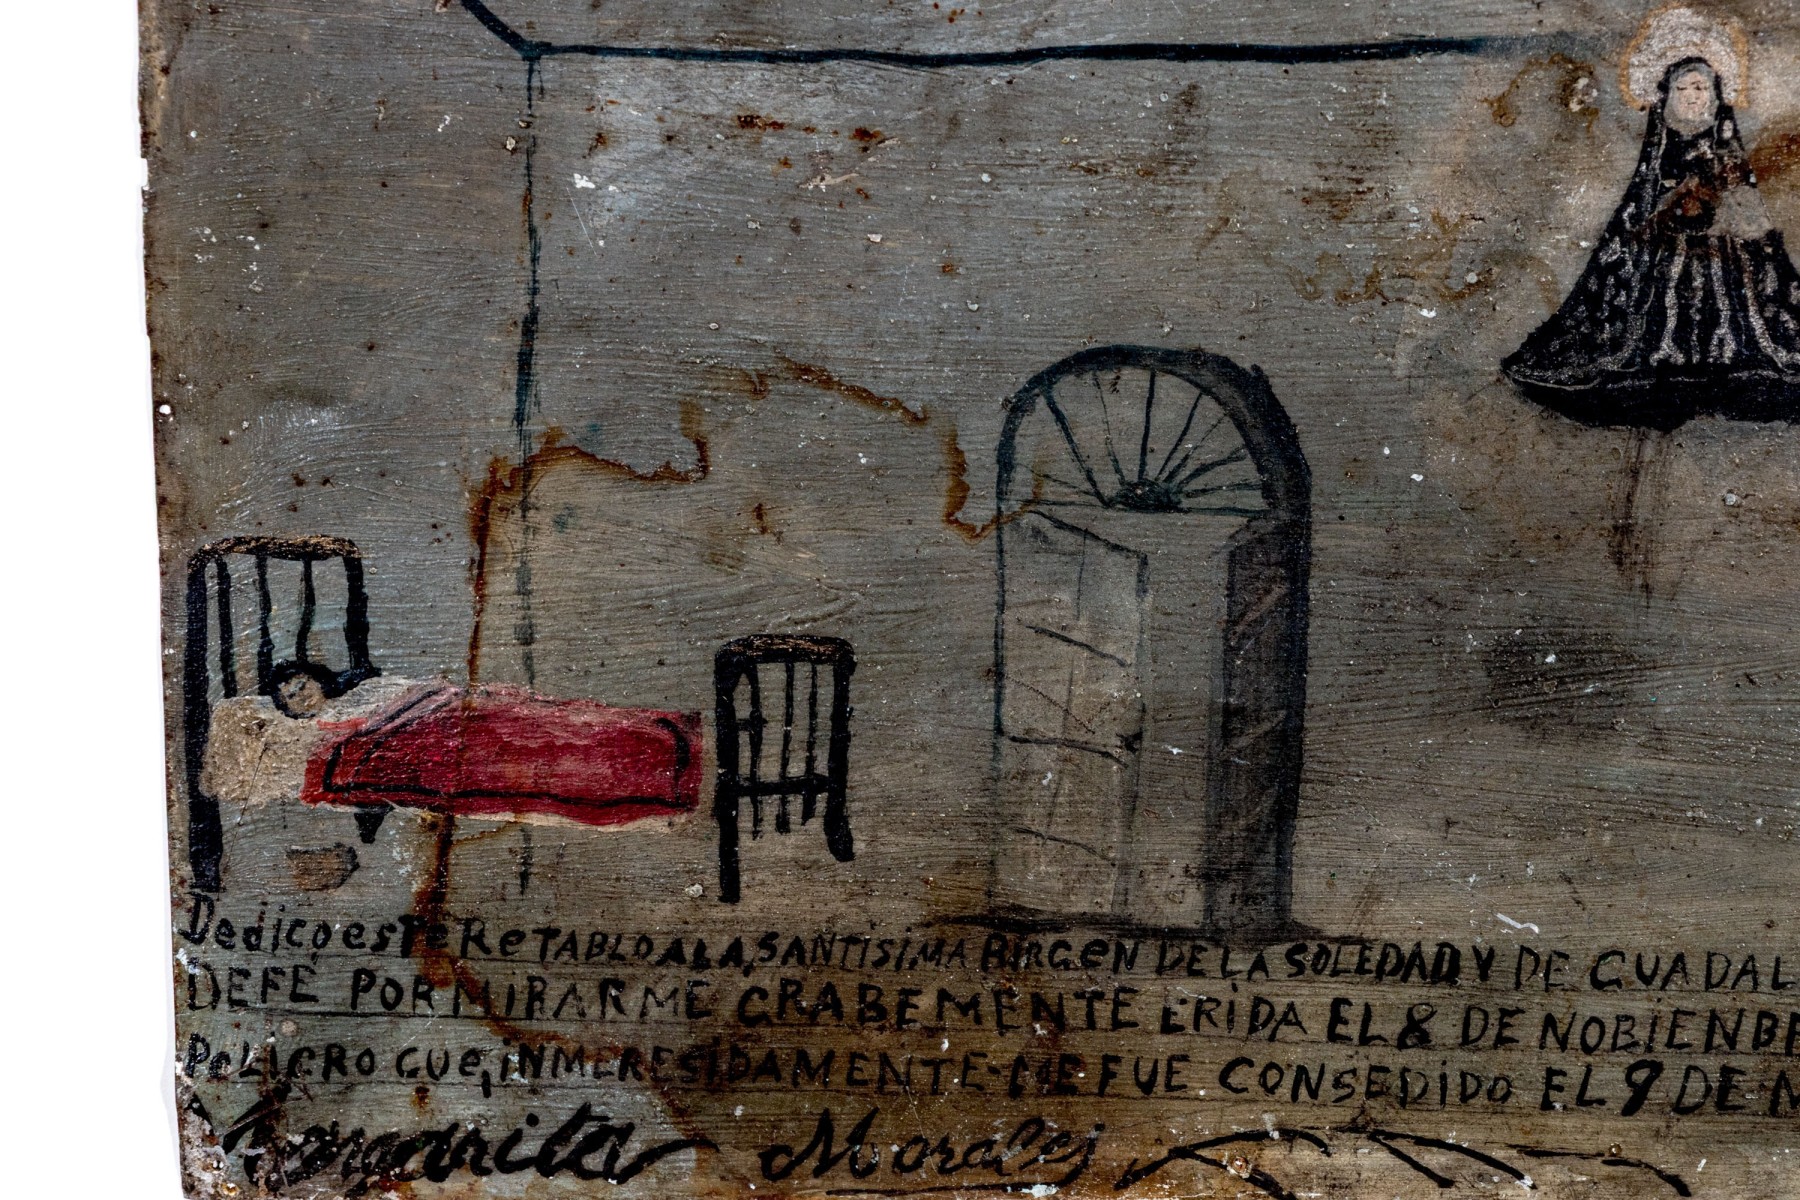 Dedico este RETABLO A LA SANTISIMA BIRGEN DE LA SOLEDAD Y DE GUADAL
DEFE POR MIRARME GRABEMENTE ERIDA EL 8 DE NOBIENBR
PELIGRO QUE, INMERESIDAMENTE ME FUE CONSEDIDO EL 9 DE N
Margarita Morales